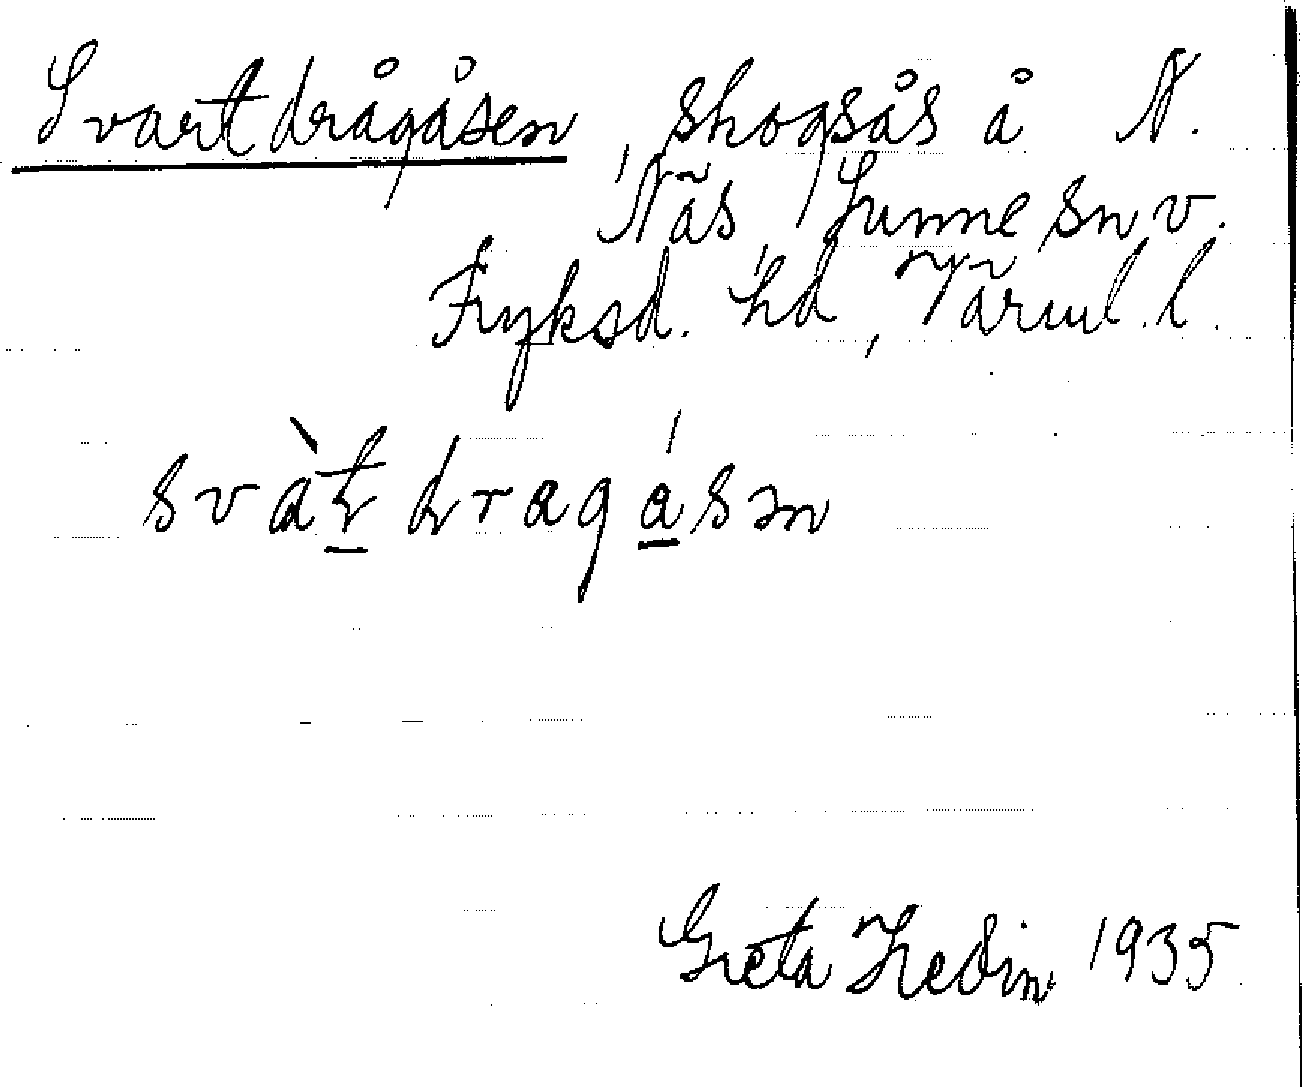 Svartdrågåsen, skogsås å N.
Näs, Sunne sn v.
Fryksd. hd, Värml. l.
svàʈ ɖragásən
Greta Hedin 1935.